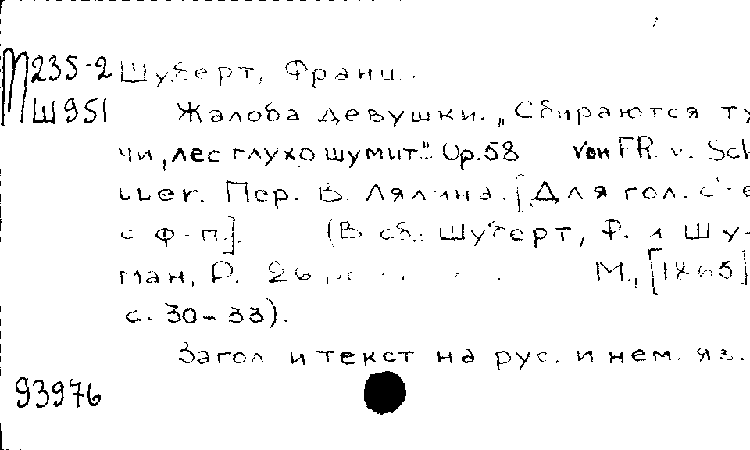 М235-2 Шуберт, Франц.
Ш951 Жалоба девушки. „Сбираются ту
чи, лес глухо шумит." Op. 58 von FR. v. Sch
iller. Пер. В. Лялина. [Для гол. с
с ф-п.]. (В сб.: Шуберт, Ф. и Шу-
ман, Р. 26 М.,
с. 30-33).
Загол и текст на рус. и нем. яз.
93976